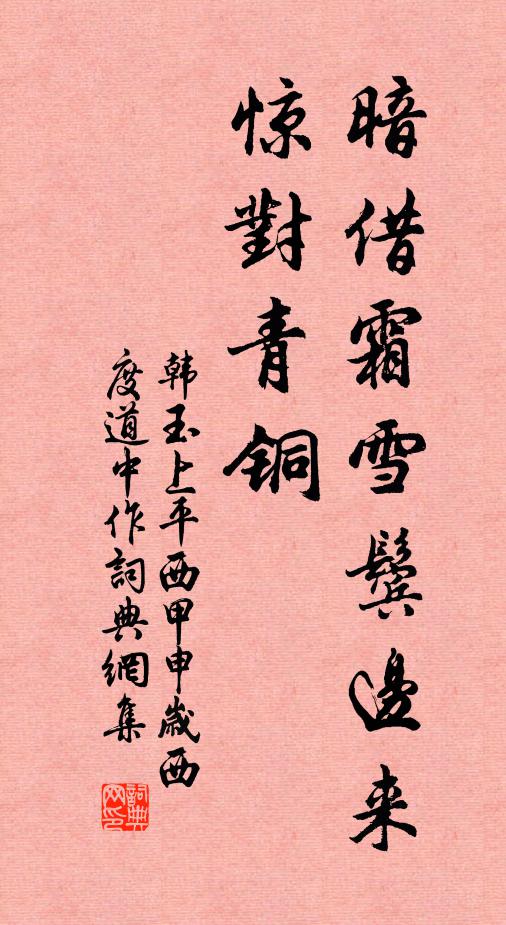 暗借霜雪鬓邊来
惊對青銅
韩玉上平西甲申嵗西
度道中作詞典網集
詞典网印